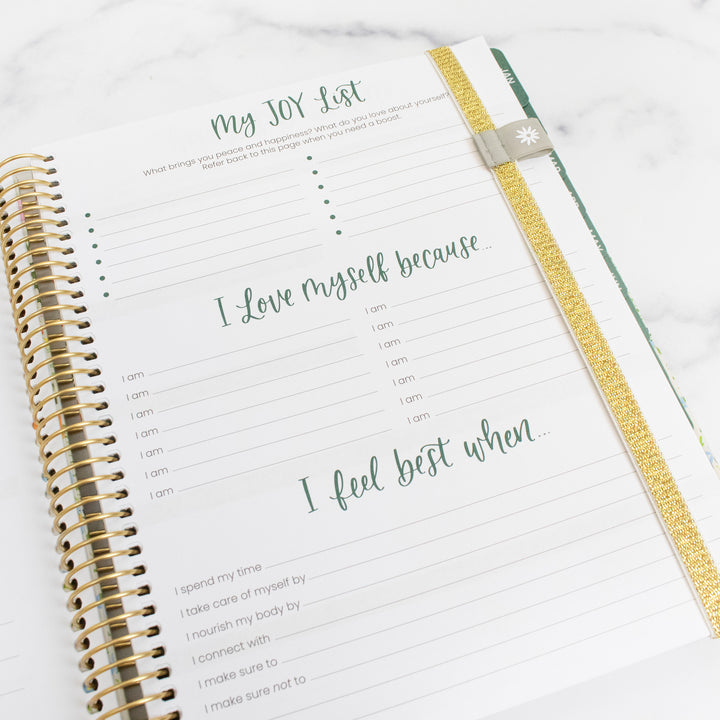 My JOY List
What brings you peace and happiness? What do you love about yourself?
Refer back to this page when you need a boost.
I Love myself because...
I am
I am
I am
I am
I am
I am
I am
I am
I am
I am
I am
I am
I am
I am
I feel best when...
I spend my time
I take care of myself by
I nourish my body by
I connect with
I make sure to
I make sure not to
JAN
MAR